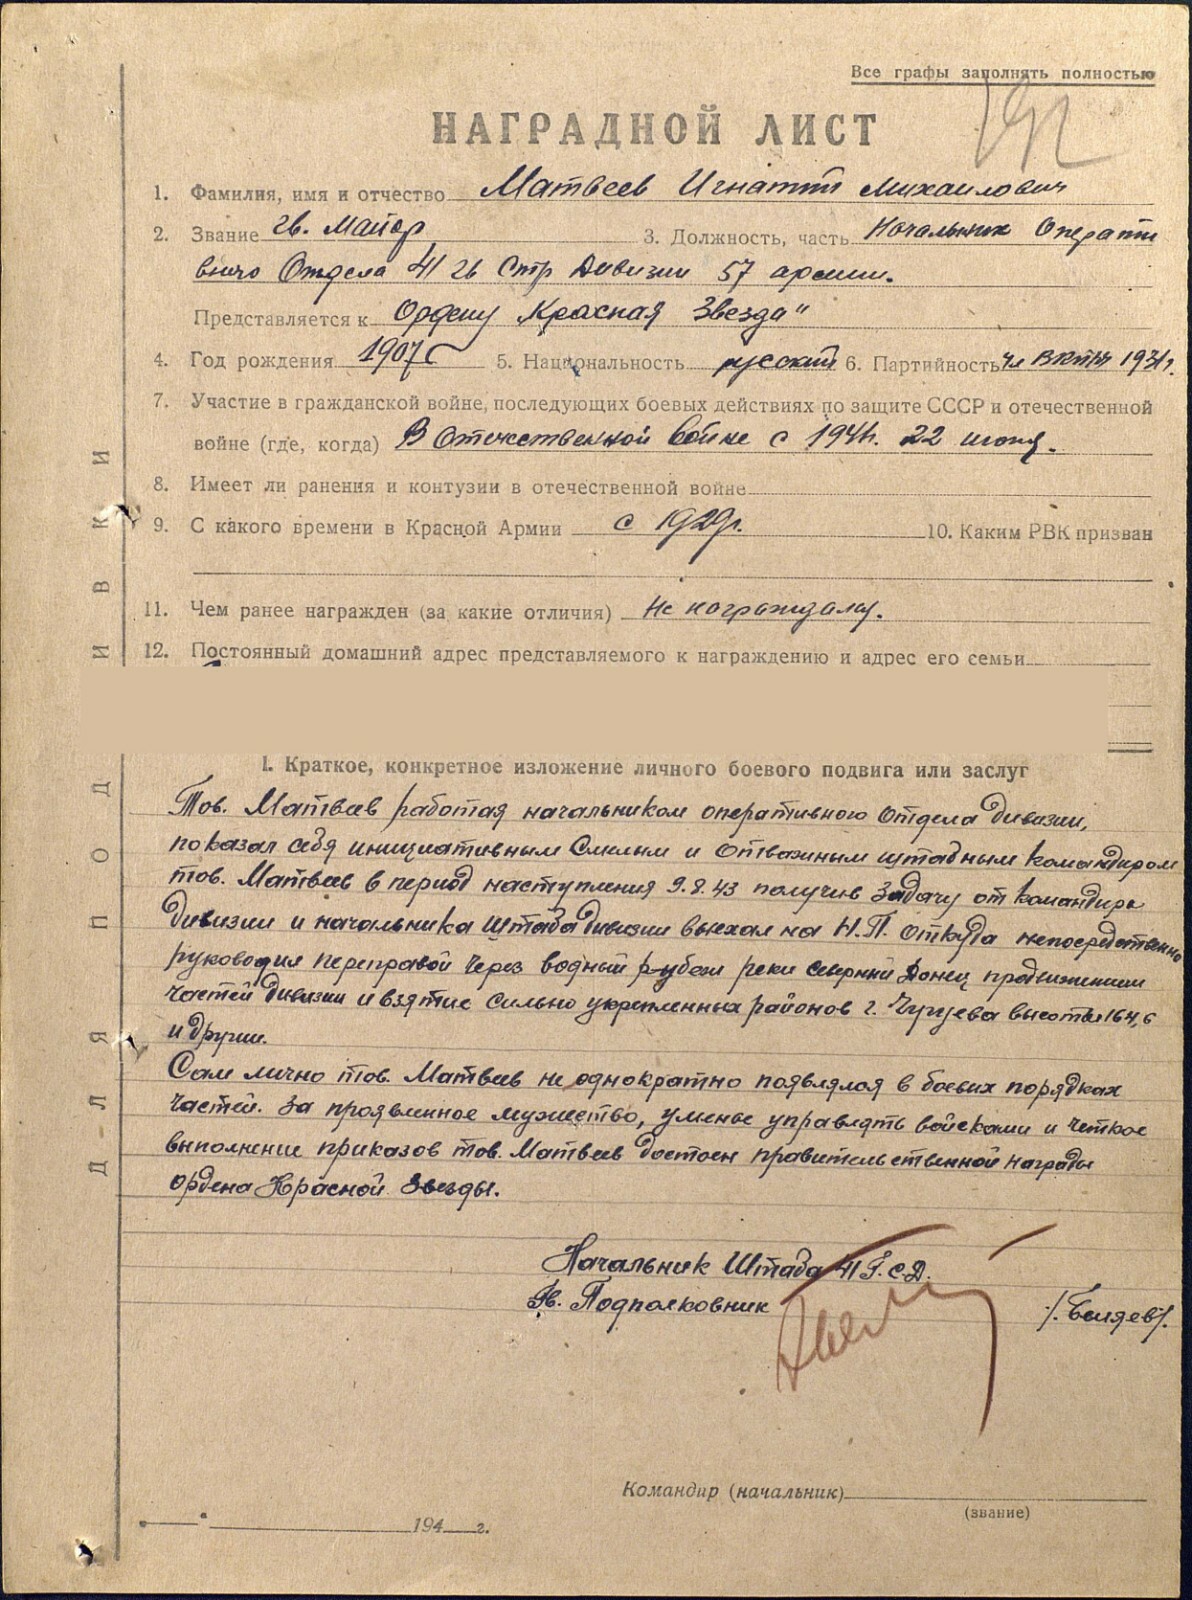 Все графы заполнять полностью
НАГРАДНОЙ ЛИСТ
1. Фамилия, имя и отчество Матвеев Игнатий Михайлович
2. Звание гв. Майор 3. Должность, часть Начальник Операти
вного Отдела 41 гв Стр Дивизии 57 армии.
Представляется к Ордену "Красная Звезда"
4. Год рождения 1907 г 5. Национальность русский 6. Партийность чл ВКПб 1931г.
7. Участие в гражданской войне, последующих боевых действиях по защите СССР и отечественной
войне (где, когда) В Отечественной войне с 1941г. 22 июня.
8. Имеет ли ранения и контузии в отечественной войне
9. С какого времени в Красной Армии с 1929г. 10. Каким РВК призван
11. Чем ранее награжден (за какие отличия) Не награждался.
12. Постоянный домашний адрес представляемого к награждению и адрес его семьи
I. Краткое, конкретное изложение личного боевого подвига или заслуг
Тов. Матвеев работая начальником оперативного отдела дивизии,
показал себя инициативным смелым и отважным штабным командиром
тов. Матвеев в период наступления 9.8.43 получив задачу от командира
дивизии и начальника штаба дивизии выехал на Н.П. откуда непосредственно
руководил переправой через водный рубеж реки северный Донец продвижением
частей дивизии и взятие сильно укрепленных районов г. Чугуева высоты 164,6
и други.
Сам лично тов. Матвеев не однократно появлялся в боевых порядках
частей. За проявленное мужество, уменье управлять войсками и четкое
выполнение приказов тов. Матвеев достоен правительственной награды
ордена Красной Звезды.
Начальник Штаба 41 Г.С.Д.
Гв. Подполковник /.Беляев/.
Командир (начальник)
(звание)
194 г.
ДЛЯ ПОДШИВКИ